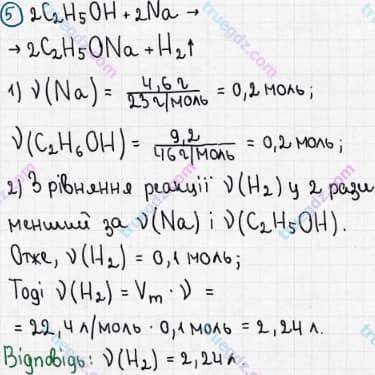 5 2C₂H₅OH + 2Na →
→ 2C₂H₅ONa + H₂↑
1) ν(Na) = 4,6 г / 23 г/моль = 0,2 моль;
ν(C₂H₆OH) = 9,2 / 46 г/моль = 0,2 моль;
2) З рівняння реакції ν(H₂) у 2 рази
менший за ν(Na) і ν(C₂H₅OH).
Отже, ν(H₂) = 0,1 моль;
Тоді ν(H₂) = Vm · ν =
= 22,4 л/моль · 0,1 моль = 2,24 л.
Відповідь: ν(H₂) = 2,24 л
truegdz.com